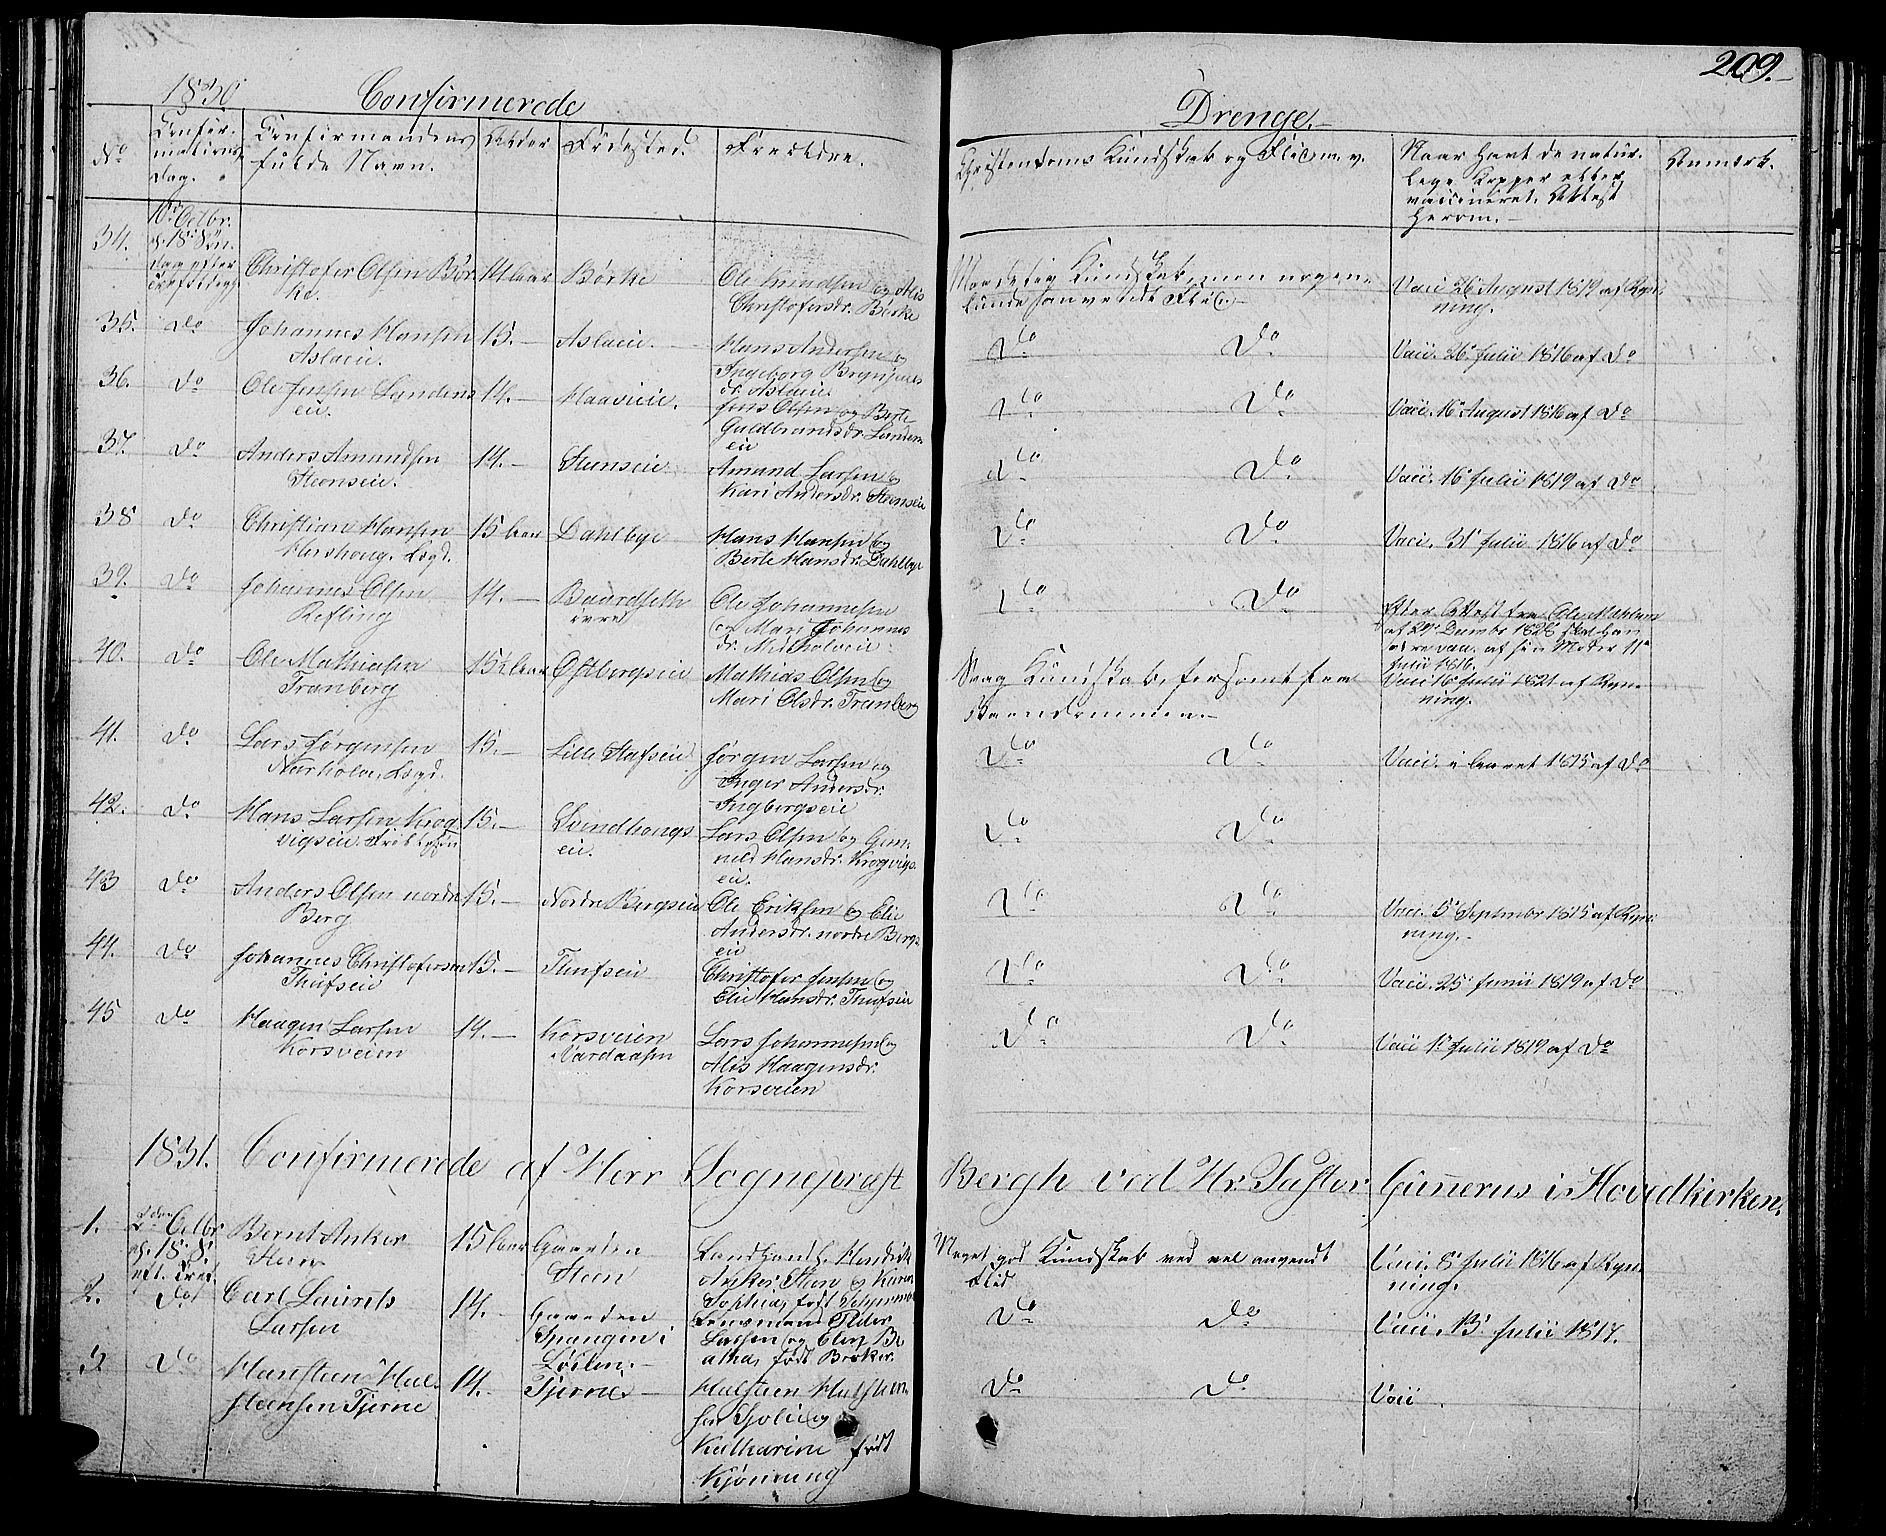 209.
1830 Confirmerede Drenge.
No
Confir-
mations
Dag.
Confirmandens
fulde Navn.
Alder
Födested.
Foreldre.
Christendoms Kundskab og Flid m. v.
Naar havt de natur-
lige Kopper eller
vaccineret. Attest
herom.
Anmerk.
34.
10de Octbr.
d. 18 Søn-
dag efter
Christofer Olsen Bör-
ke.
14 Aar
Börke
Ole Knudsen og Alis
Christofersdr. Börke
Maadelig Kundskab, men nogen-
lunde anvendt Flid.
Vacc. 26 August 1819 af Ryn-
ning.
35. Do
Johannes Hansen
Aslaeie.
15.
Aslaeie.
Hans Andersen og
Ingeborg Brynildsdr. Aslaeie.
Do Do
Vacc. 26 Julii 1816 af Do
36. Do
Ole Jensen Lundens
eie.
14.
Haavieie.
Jens Olsen og Berte
Guldbrandsdr. Lunden-
eie
Do Do
Vacc. 16 August 1816 af Do
37. Do
Anders Amundsen
Steenseie.
14.
Steenseie
Amund Larsen og
Kari Andersdr. Steenseie
Do Do
Vacc. 16 Julii 1819 af Do
38 Do
Christian Hansen
Lægd.
15 Aar
Dahlbye
Hans Hansen og
Berte Hansdr. Dahlbye
Do Do
Vacc. 31 Julii 1816 af Do
39. Do
Johannes Olsen
Refling
14.
Baardseth
övre
Ole Johannesen
og Mari Johannes
dr.
Do Do
Efter Attest fra Ole
af sin Moder 11te
Julii 1816.
40. Do
Ole Mathiasen
Tranberg
15½ Aar
Östbergseie
Mathias Olsen og
Mari Olsdr. Tranberg
Svag Kundskab,
Vacc. 16 Julii 1821 af Ryn-
ning.
41. Do
Lars Jörgensen
Lægd.
15.
Lille Stafseie
Jörgen Larsen og
Inger Andersdr.
Ingbergseie
Do Do
Vacc. i Aaret 1815 af Do
42. Do
Hans Larsen Krog
vigseie.
15.
Svendhougs
eie.
Lars Olsen og Gun-
nild Hansdr. Krogvigs-
eie.
Do Do
43 Do
Anders Olsen nordre
Berg
15.
Nordre Bergseie
Ole Eriksen og Elie
Andersdr. nordre Bergs-
eie
Do Do
Vacc. 5 Septembr 1815 af Ryn-
ning.
44. Do
Johannes Christofersen
Thufseie
15.
Thufseie
Christofer Jensen og
Elie Hansdr. Thufseie
Do Do
Vacc. 25 Junii 1819 af Do
45 Do
Haagen Larsen
Korsveien
14.
Korsveien
Lars Johannesen og
Alis Haagensdr.
Korsveien
Do Do
Vacc 1 Julii 1819 af Do
1831. Confirmerede af Herr Sogneprest Bergh ved Hr. Pastor Gunnerus i Hovedkirken.
1.
2den Octbr
d. 18. S.
eft. Tref.
Bernt Anker
Steen
15 Aar
Gaarden
Steen
Landhandl. Hendrik
Anker Steen og Karen
Sophia, födt
Meget god Kundskab ved vel anvendt
Flid
Vacc. 8 Julii 1816 af Ryn-
ning.
2. Do
Carl Laurits
Larsen
14.
Gaarden
Spangen i
Löiten.
Lensmand Peder
Larsen og Elen Be-
atha, födt Broker.
Do Do
Vacc. 13 Julii 1817.
3 Do
Hansteen Hal-
steensen Tjerne
14.
Tjerne
Halsteen Halsteen-
sen Tjolie og
Katharine födt
Kjönnung
Do Do
Vacc.